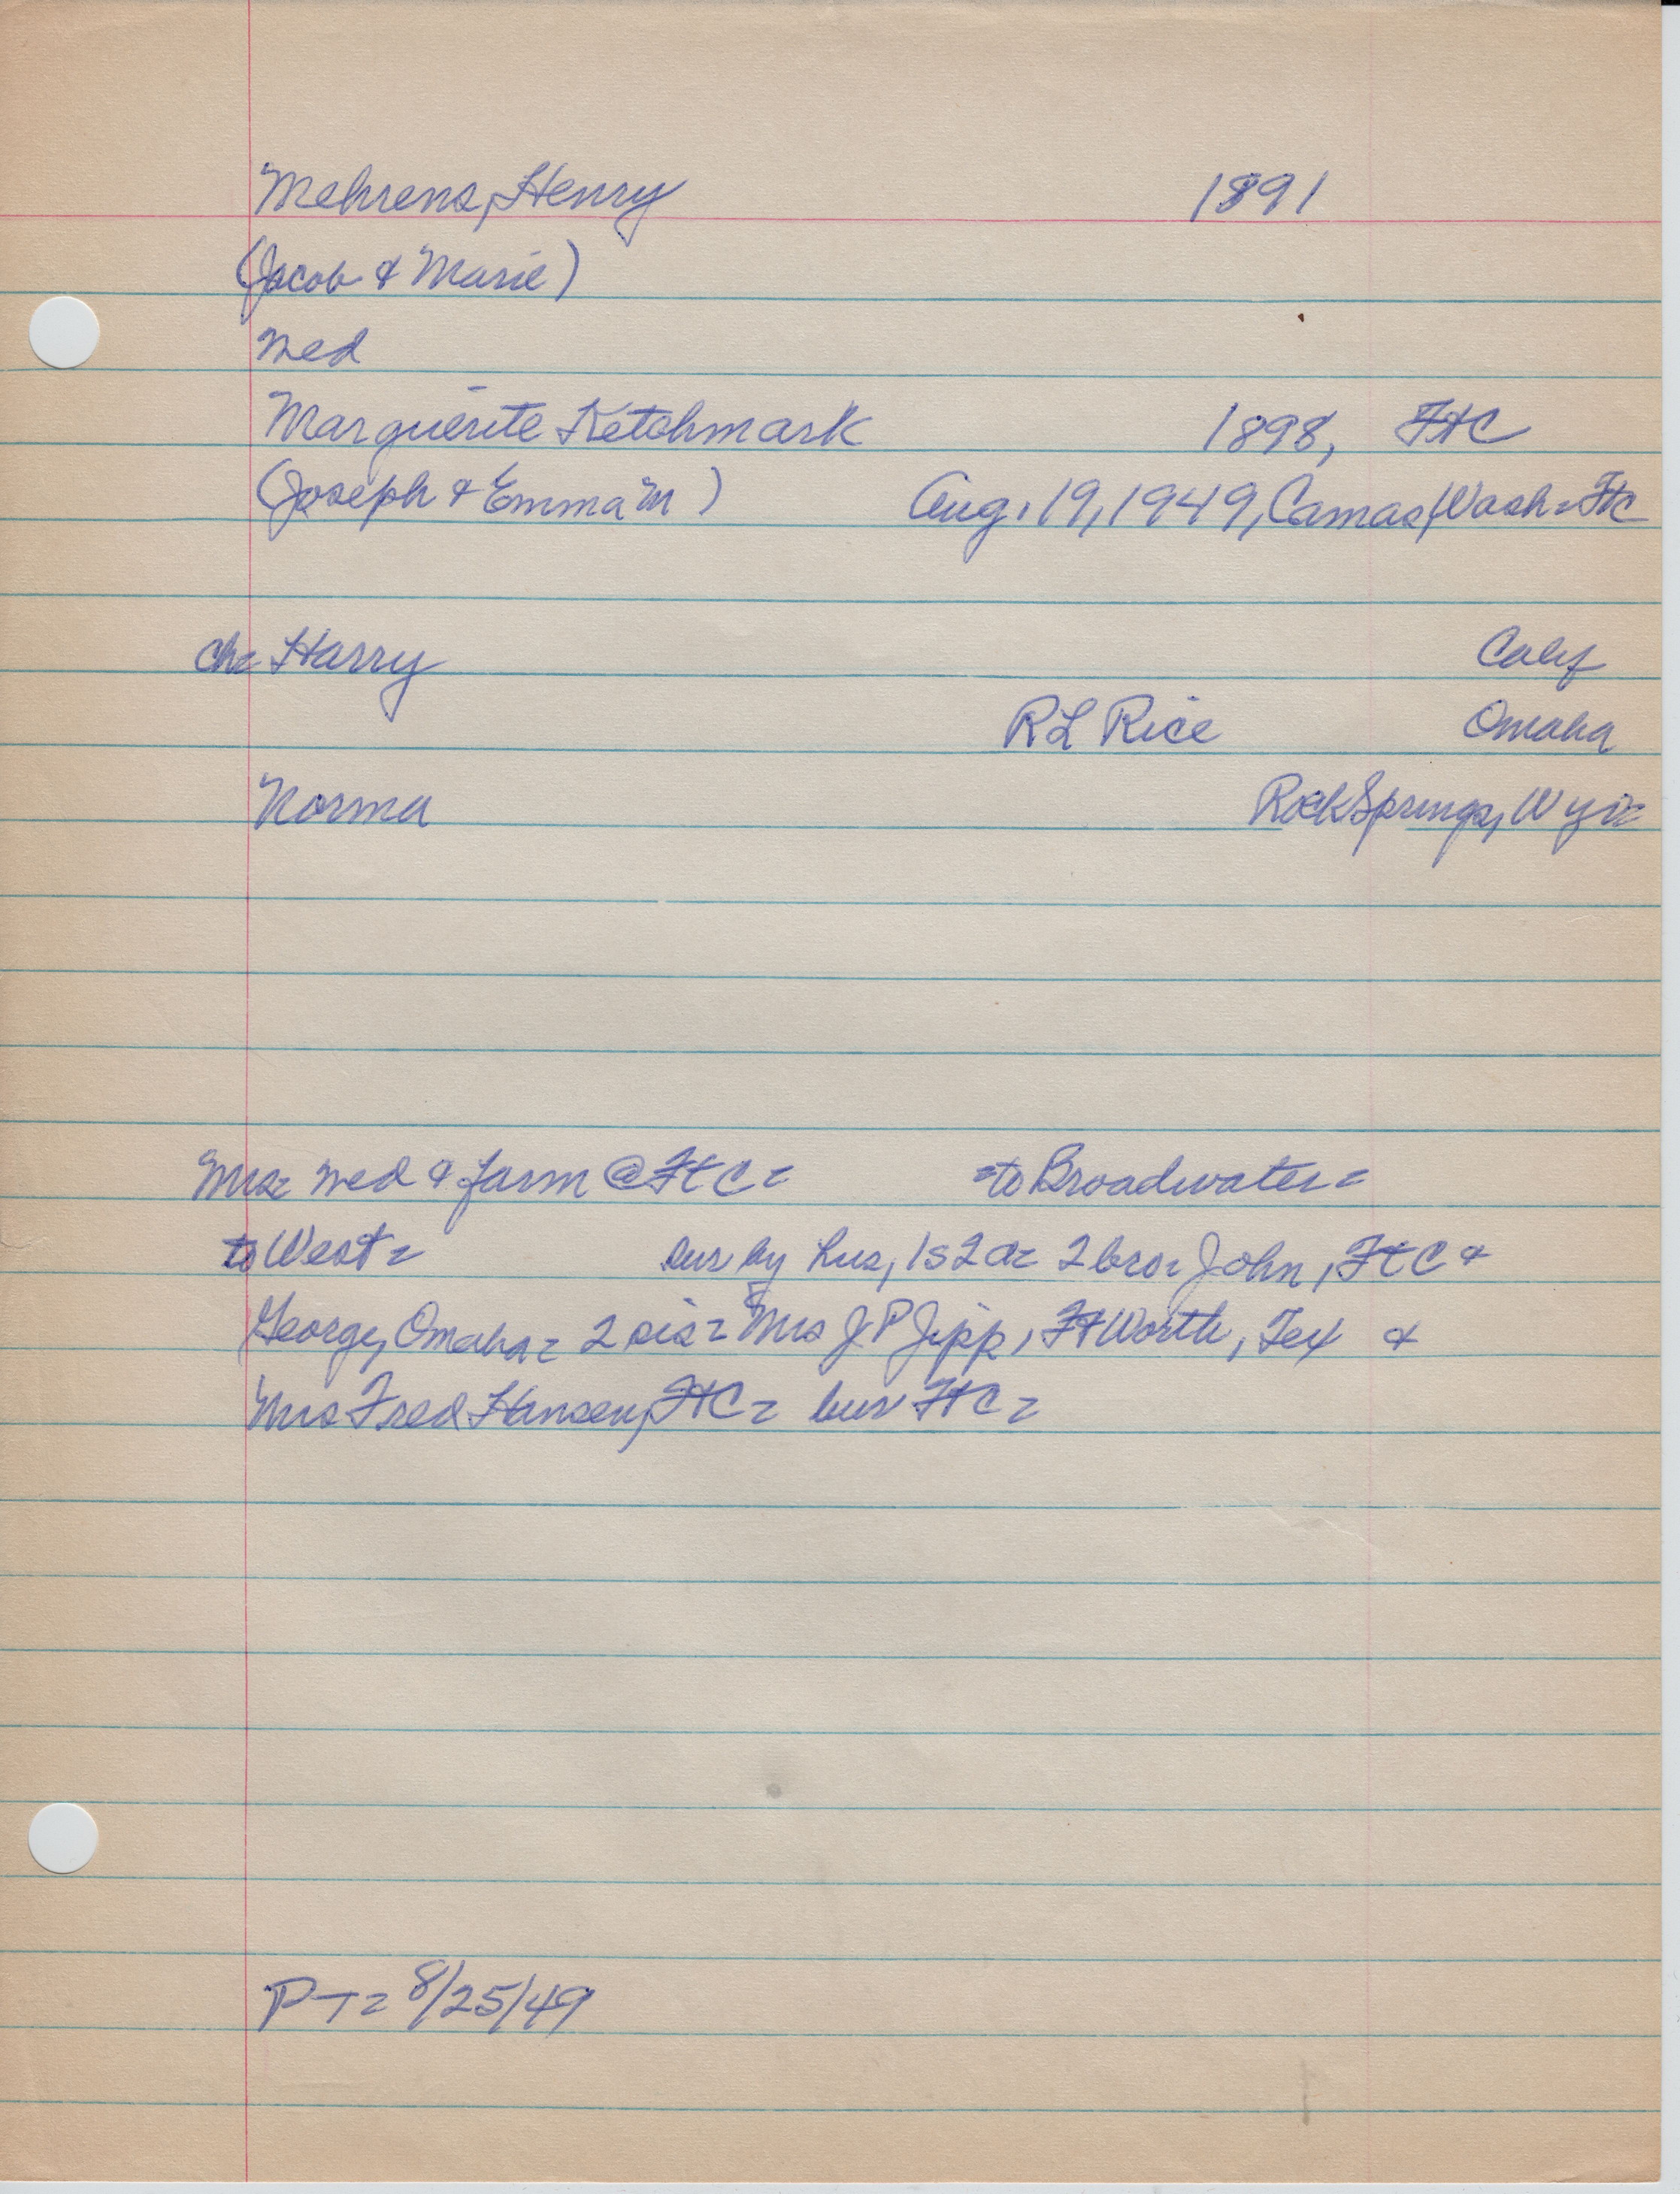 Mehrens, Henry 1891
(Jacob & Marie)
wed
Marguerite Ketchmark 1898, FtC
(Joseph & Emma M) Aug. 19, 1949, Camas, Wash = FtC
ch = Harry Calif
RL Rice Omaha
Norma Rock Springs, Wy =
Mrs = wed & farm @ FtC = = to Broadwater =
to West = sur by hus, 1s 2d = 2 bro = John, FtC &
George, Omaha = 2 sis = Mrs J P Jipp, Ft Worth, Tex &
Mrs Fred Hansen, FtC = bur FtC =
PT = 8/25/49